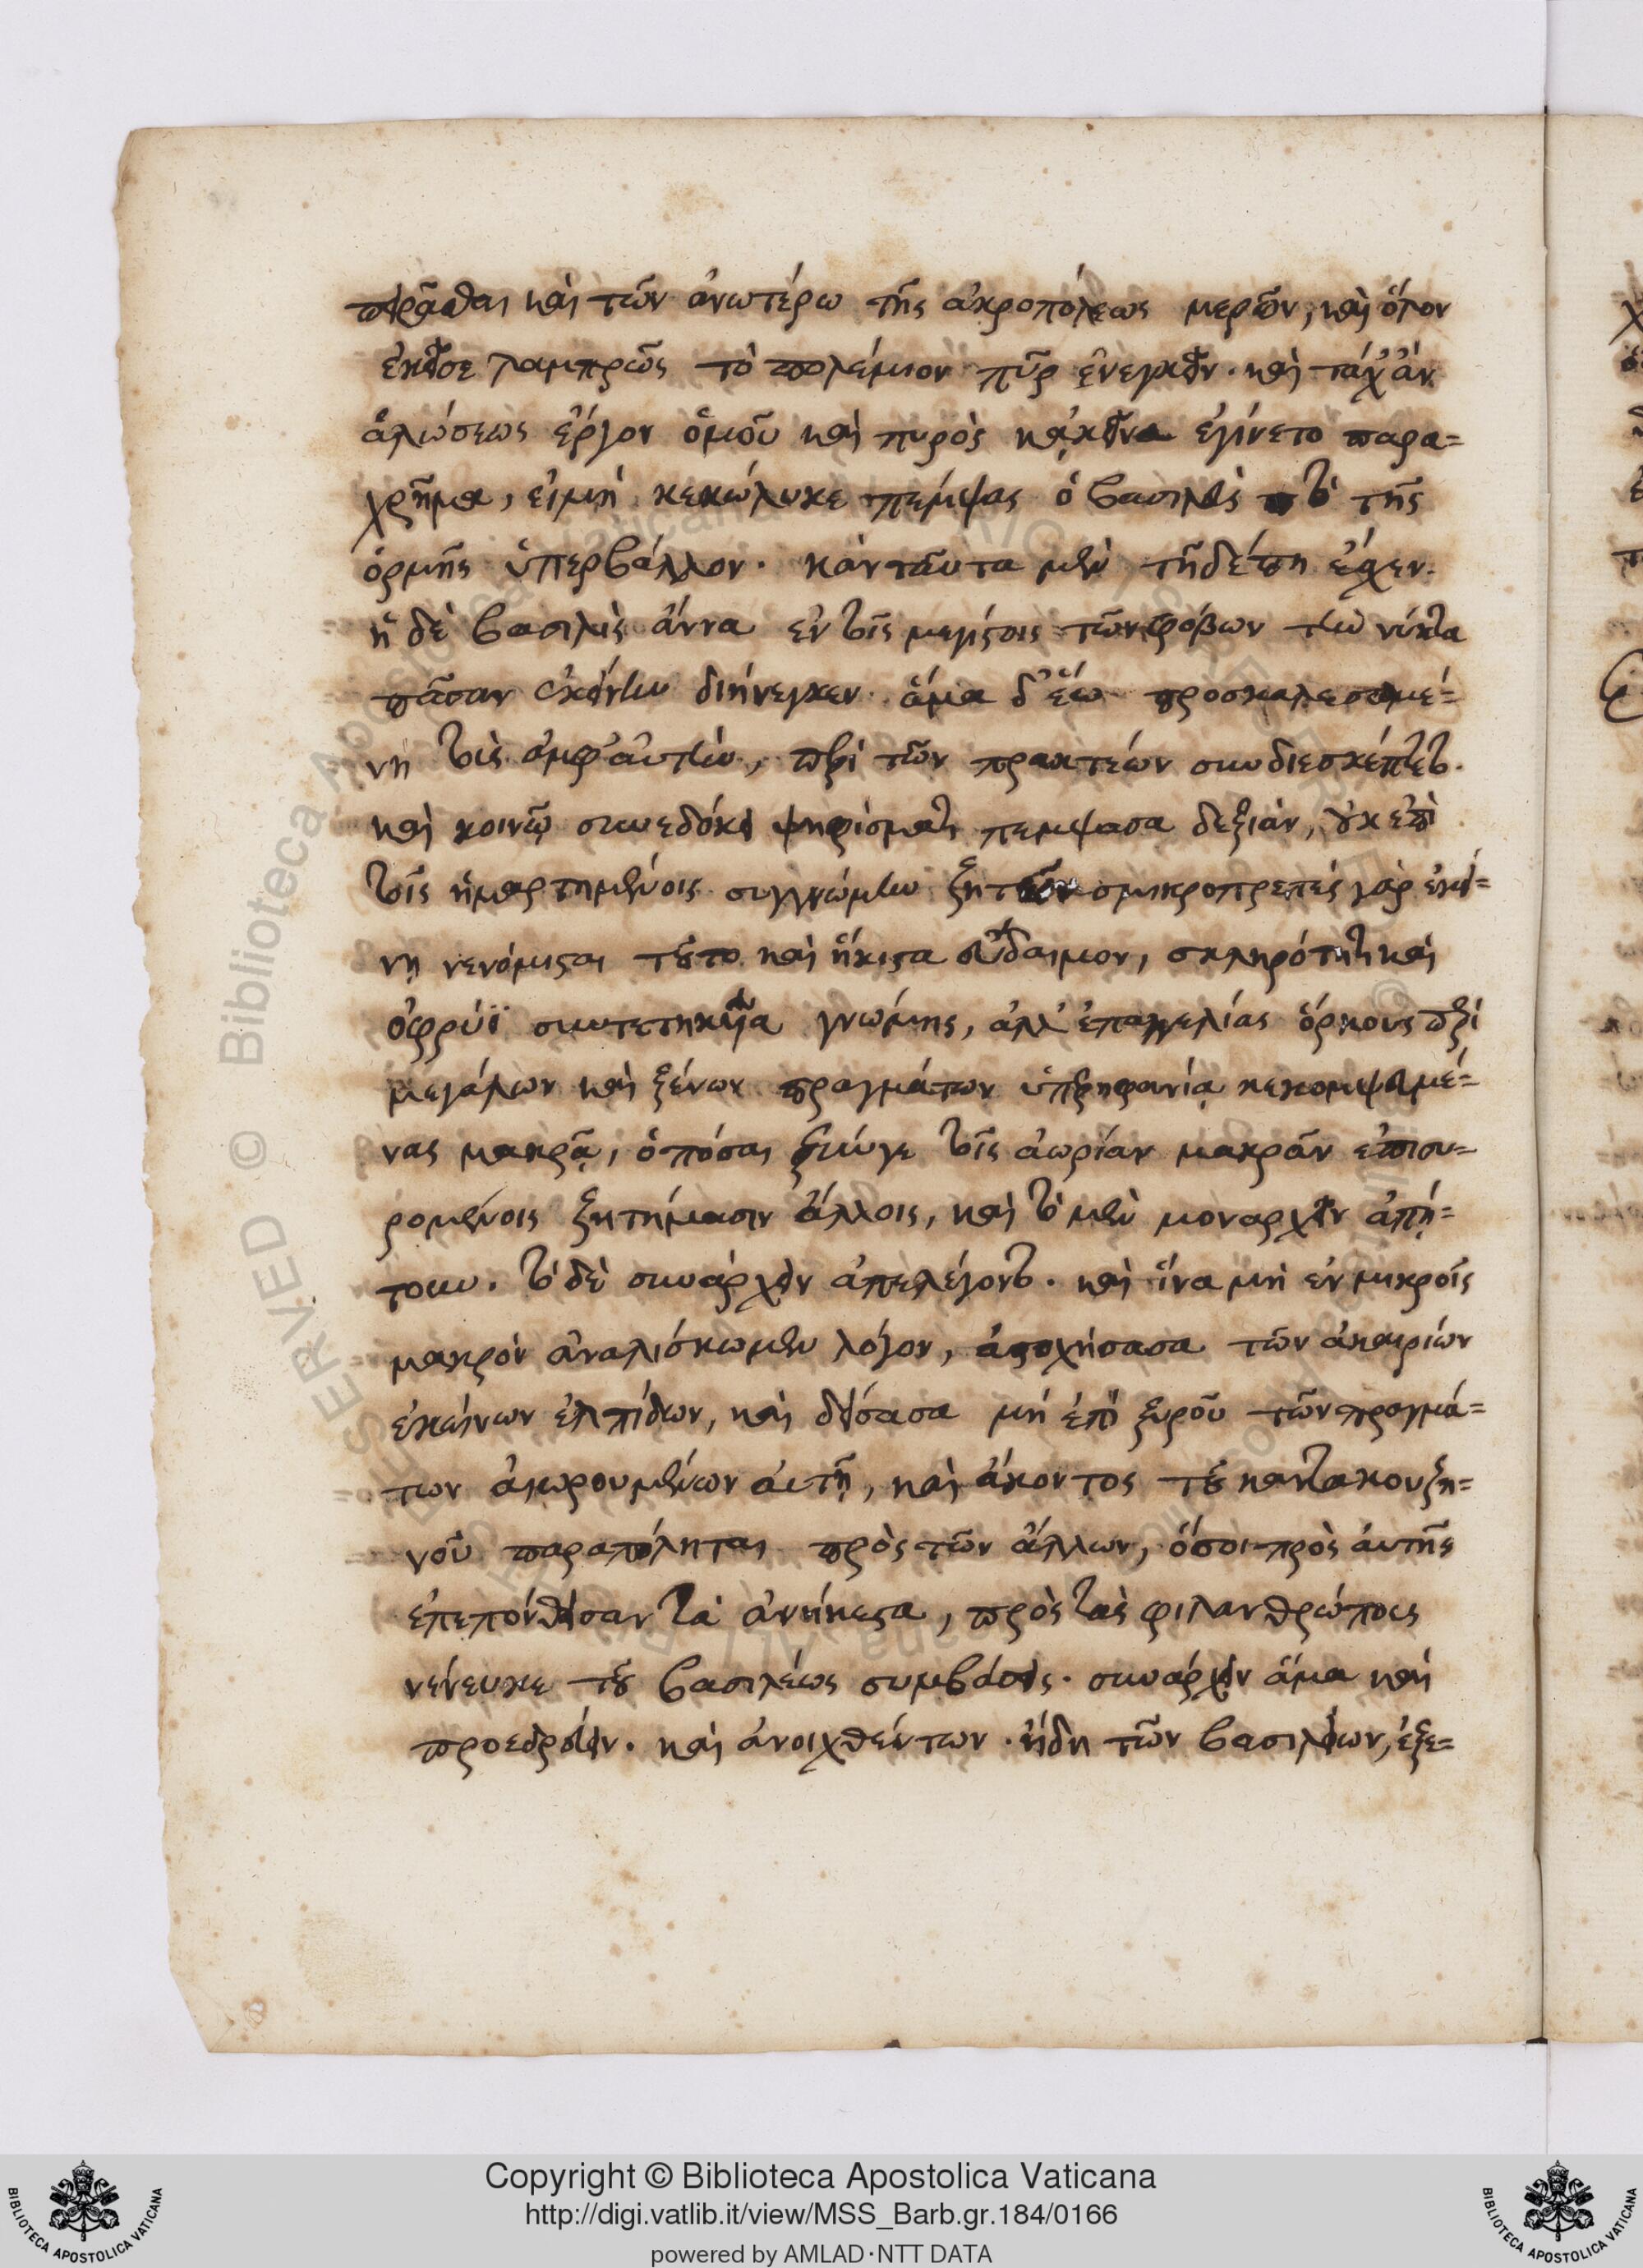 πειρᾶσθαι καὶ τῶν ἀνωτέρω τῆς ἀκροπόλεως μερῶν, καὶ ὅλον
ἐκεῖσε λαμπρῶς τὸ πολέμιον πῦρ ἐνεγκεῖν. καὶ τάχ' ἂν
ἁλώσεως ἔργον ὁμοῦ καὶ πυρὸς κἀκεῖνα ἐγίνετο παρα=
χρῆμα, εἰμὴ κεκώλυκε πέμψας ὁ βασιλεὺς τὸ τῆς
ὁρμῆς ὑπερβάλλον. κἀνταῦτα μὲν τῇδέπη εἶχεν.
ἡ δὲ βασιλὶς ἄννα ἐν τοῖς μεγίστοις τῶν φόβων τὴν νύκτα
πᾶσαν ἐκείνην διήνεγκεν. ἅμα δ' ἕῳ προσκαλεσαμέ=
νη τοὺς ἀμφ' αὐτὴν, περὶ τῶν πρακτέων συνδιεσκέπτετο.
καὶ κοινῷ συνεδόκει ψηφίσματι πέμψασα δεξιὰν, οὐκ ἐπὶ
τοῖς ἡμαρτημένοις συγγνώμην ζητεῖν σμικροπρεπὲς γὰρ ἐκεί=
νῃ νενόμισται τοῦτο καὶ ἥκιστα εὔδαιμον, σκληρότητι καὶ
ὀφρύϊ συντετηκυῖα γνώμης, ἀλλ' ἐπαγγελίας ὅρκους περὶ
μεγάλων καὶ ξένων πραγμάτων ὑπερηφανίᾳ κεκομψευμέ=
νας μακρᾷ, ὁπόσαι τοῖς ἀωρίαν μακρὰν ἐπισυ=
ρομένοις ζητήμασιν ἄλλοις, καὶ τὸ μὲν μοναρχεῖν ἀπῄ=
τουν. τὸ δὲ συνάρχειν ἀπελέγοντο. καὶ ἵνα μὴ ἐν μικροῖς
μακρὸν ἀναλίσκωμεν λόγον, ἀστοχήσασα τῶν ἀκαιρίων
ἐκείνων ἐλπίδων, καὶ δείσασα μὴ ἐπὶ ξυροῦ τῶν πραγμά=
των ἀκωρουμένων αὐτῇ, καὶ ἄκοντος τοῦ καντακουζη=
νοῦ παραπόληται πρὸς τῶν ἄλλων, ὅσοι πρὸς αὐτῆς
ἐπεπόνθεισαν τὰ ἀνήκεστα, πρὸς τὰς φιλανθρώπους
νένευκε τοῦ βασιλέως συμβάσεις. συνάρχειν ἅμα καὶ
προεδρεύειν. καὶ ἀνοιχθέντων ἤδη τῶν βασιλείων, ἐξε=
Copyright © Biblioteca Apostolica Vaticana
http://digi.vatlib.it/view/MSS_Barb.gr.184/0166
powered by AMLAD·NTT DATA